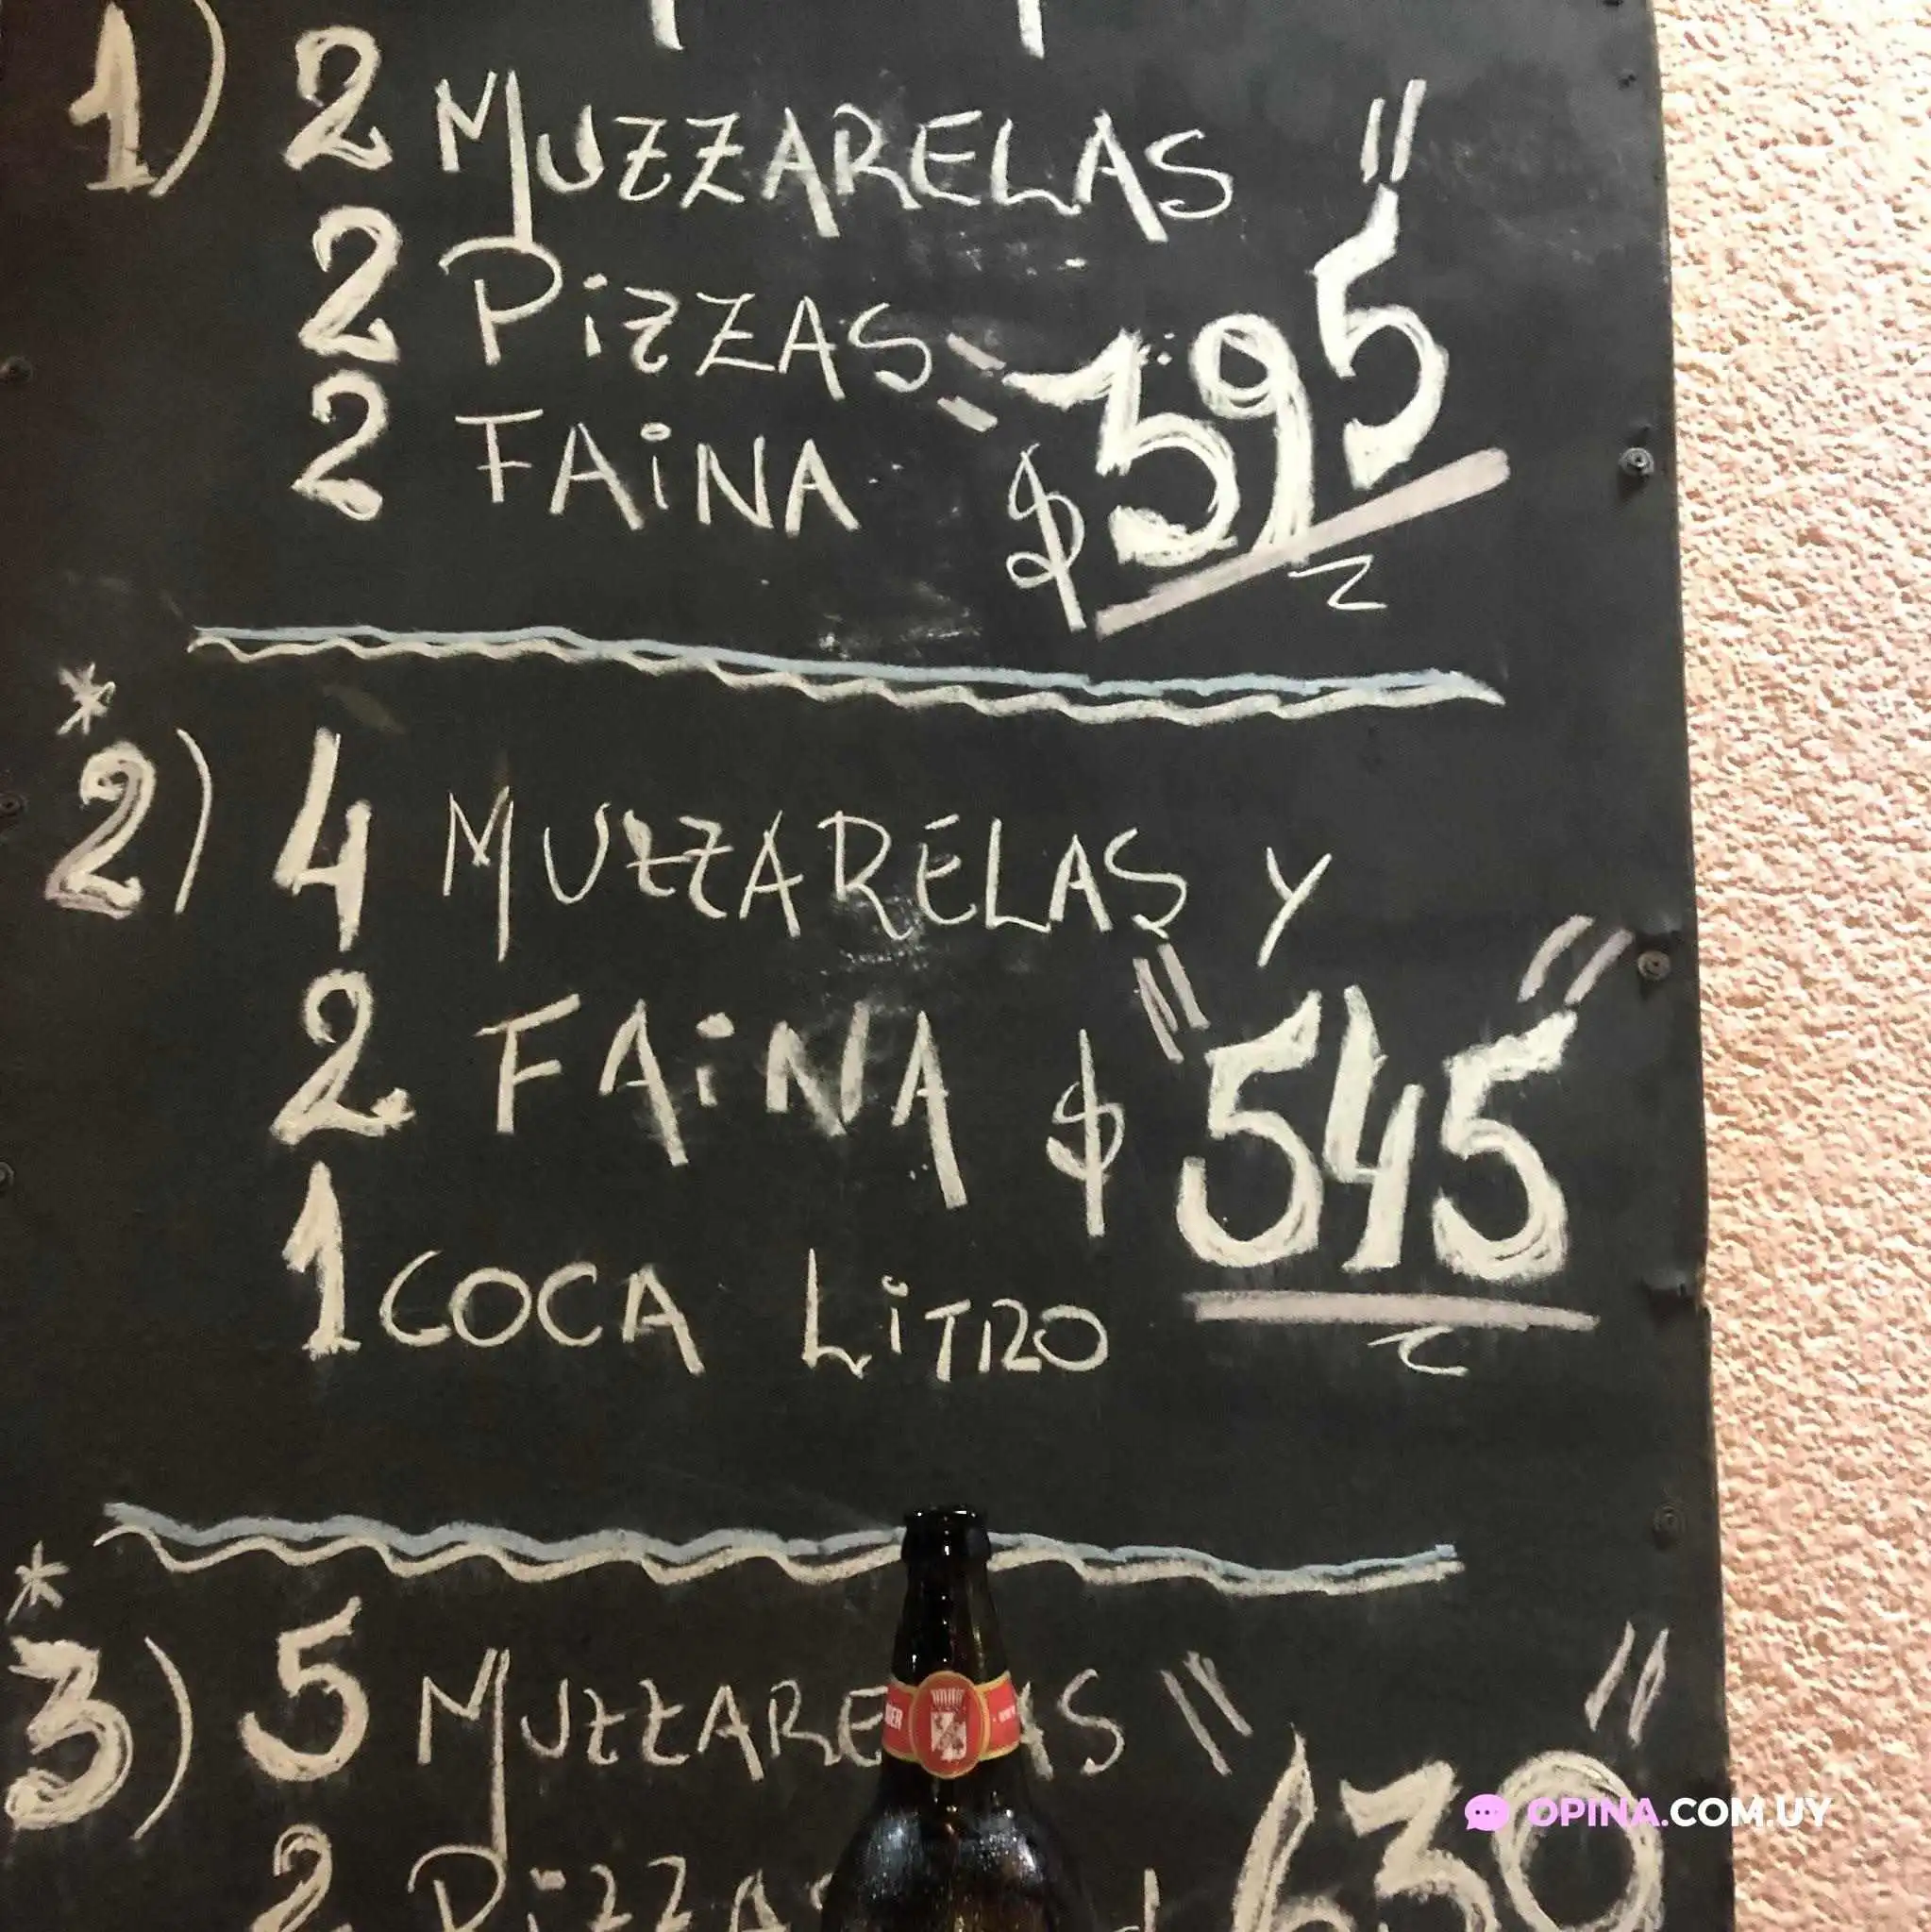 1) 2 MUZZARELAS
2 PiZZAS
2 FAiNA $395
*2) 4 MUZZARELAS Y
2 FAiNA $545
1 COCA LiTRO
*3) 5 MUZZARELAS
2 PiZZAS 630
OPINA.COM.UY